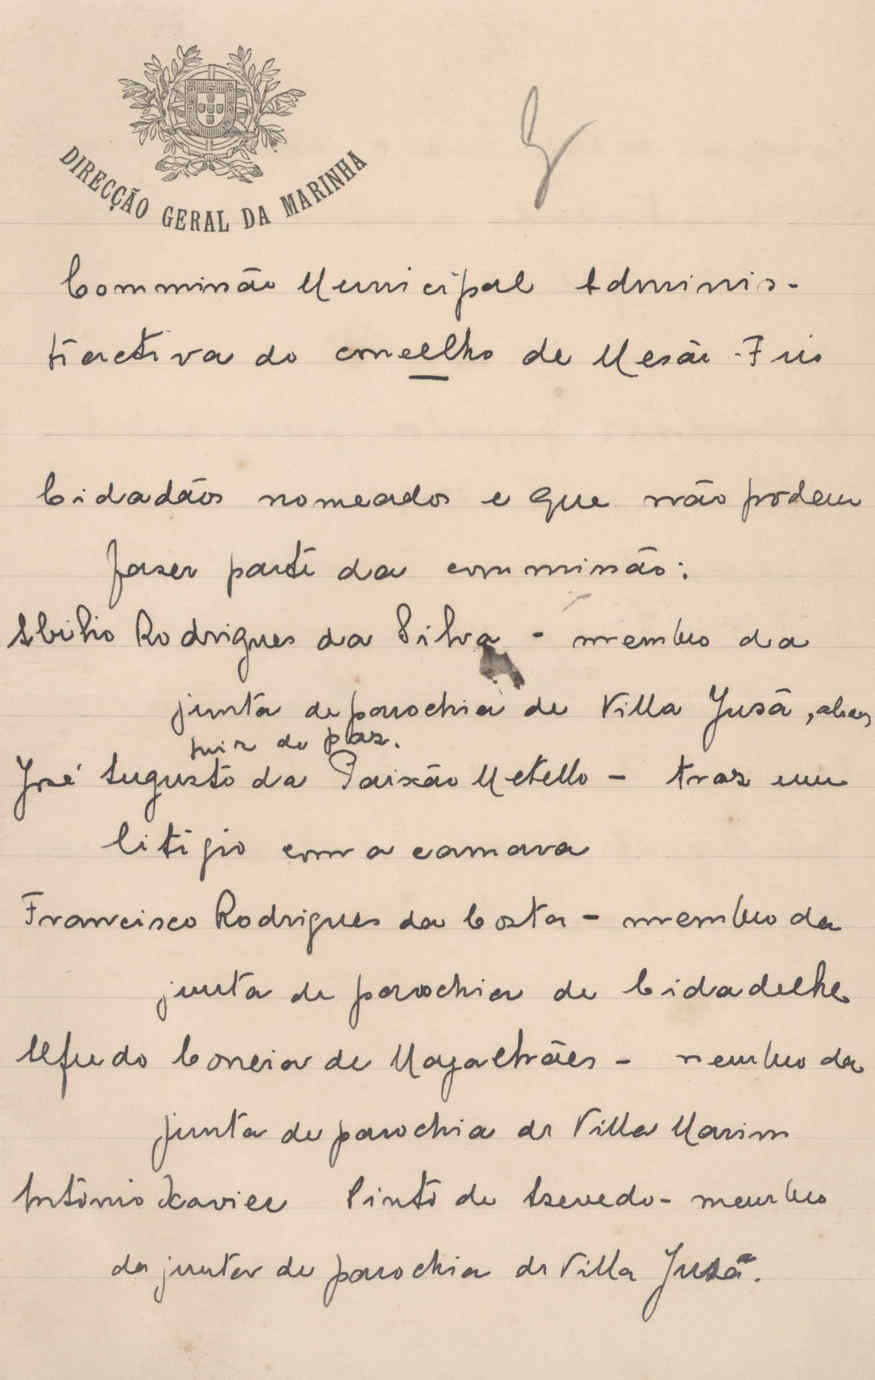 DIRECÇÃO GERAL DA MARINHA
Commissão Municipal Adminis-
tractiva do concelho de Mesão-Frio
Cidadãos nomeados e que não podem
fazer parte da commissão:
Abilio Rodrigues da Silva - membro da
junta de parochia de Villa Jusã, aliás
juiz de paz.
José Augusto da Paixão Metello - traz um
litigio com a camara
Francisco Rodrigues da Costa - membro da
junta de parochia de Cidadelhe
Alfredo Correia de Magalhães - membro da
junta de parochia de Villa Marim
António Xavier Pinto de Azevedo - membro
da junta de parochia de Villa Jusã.